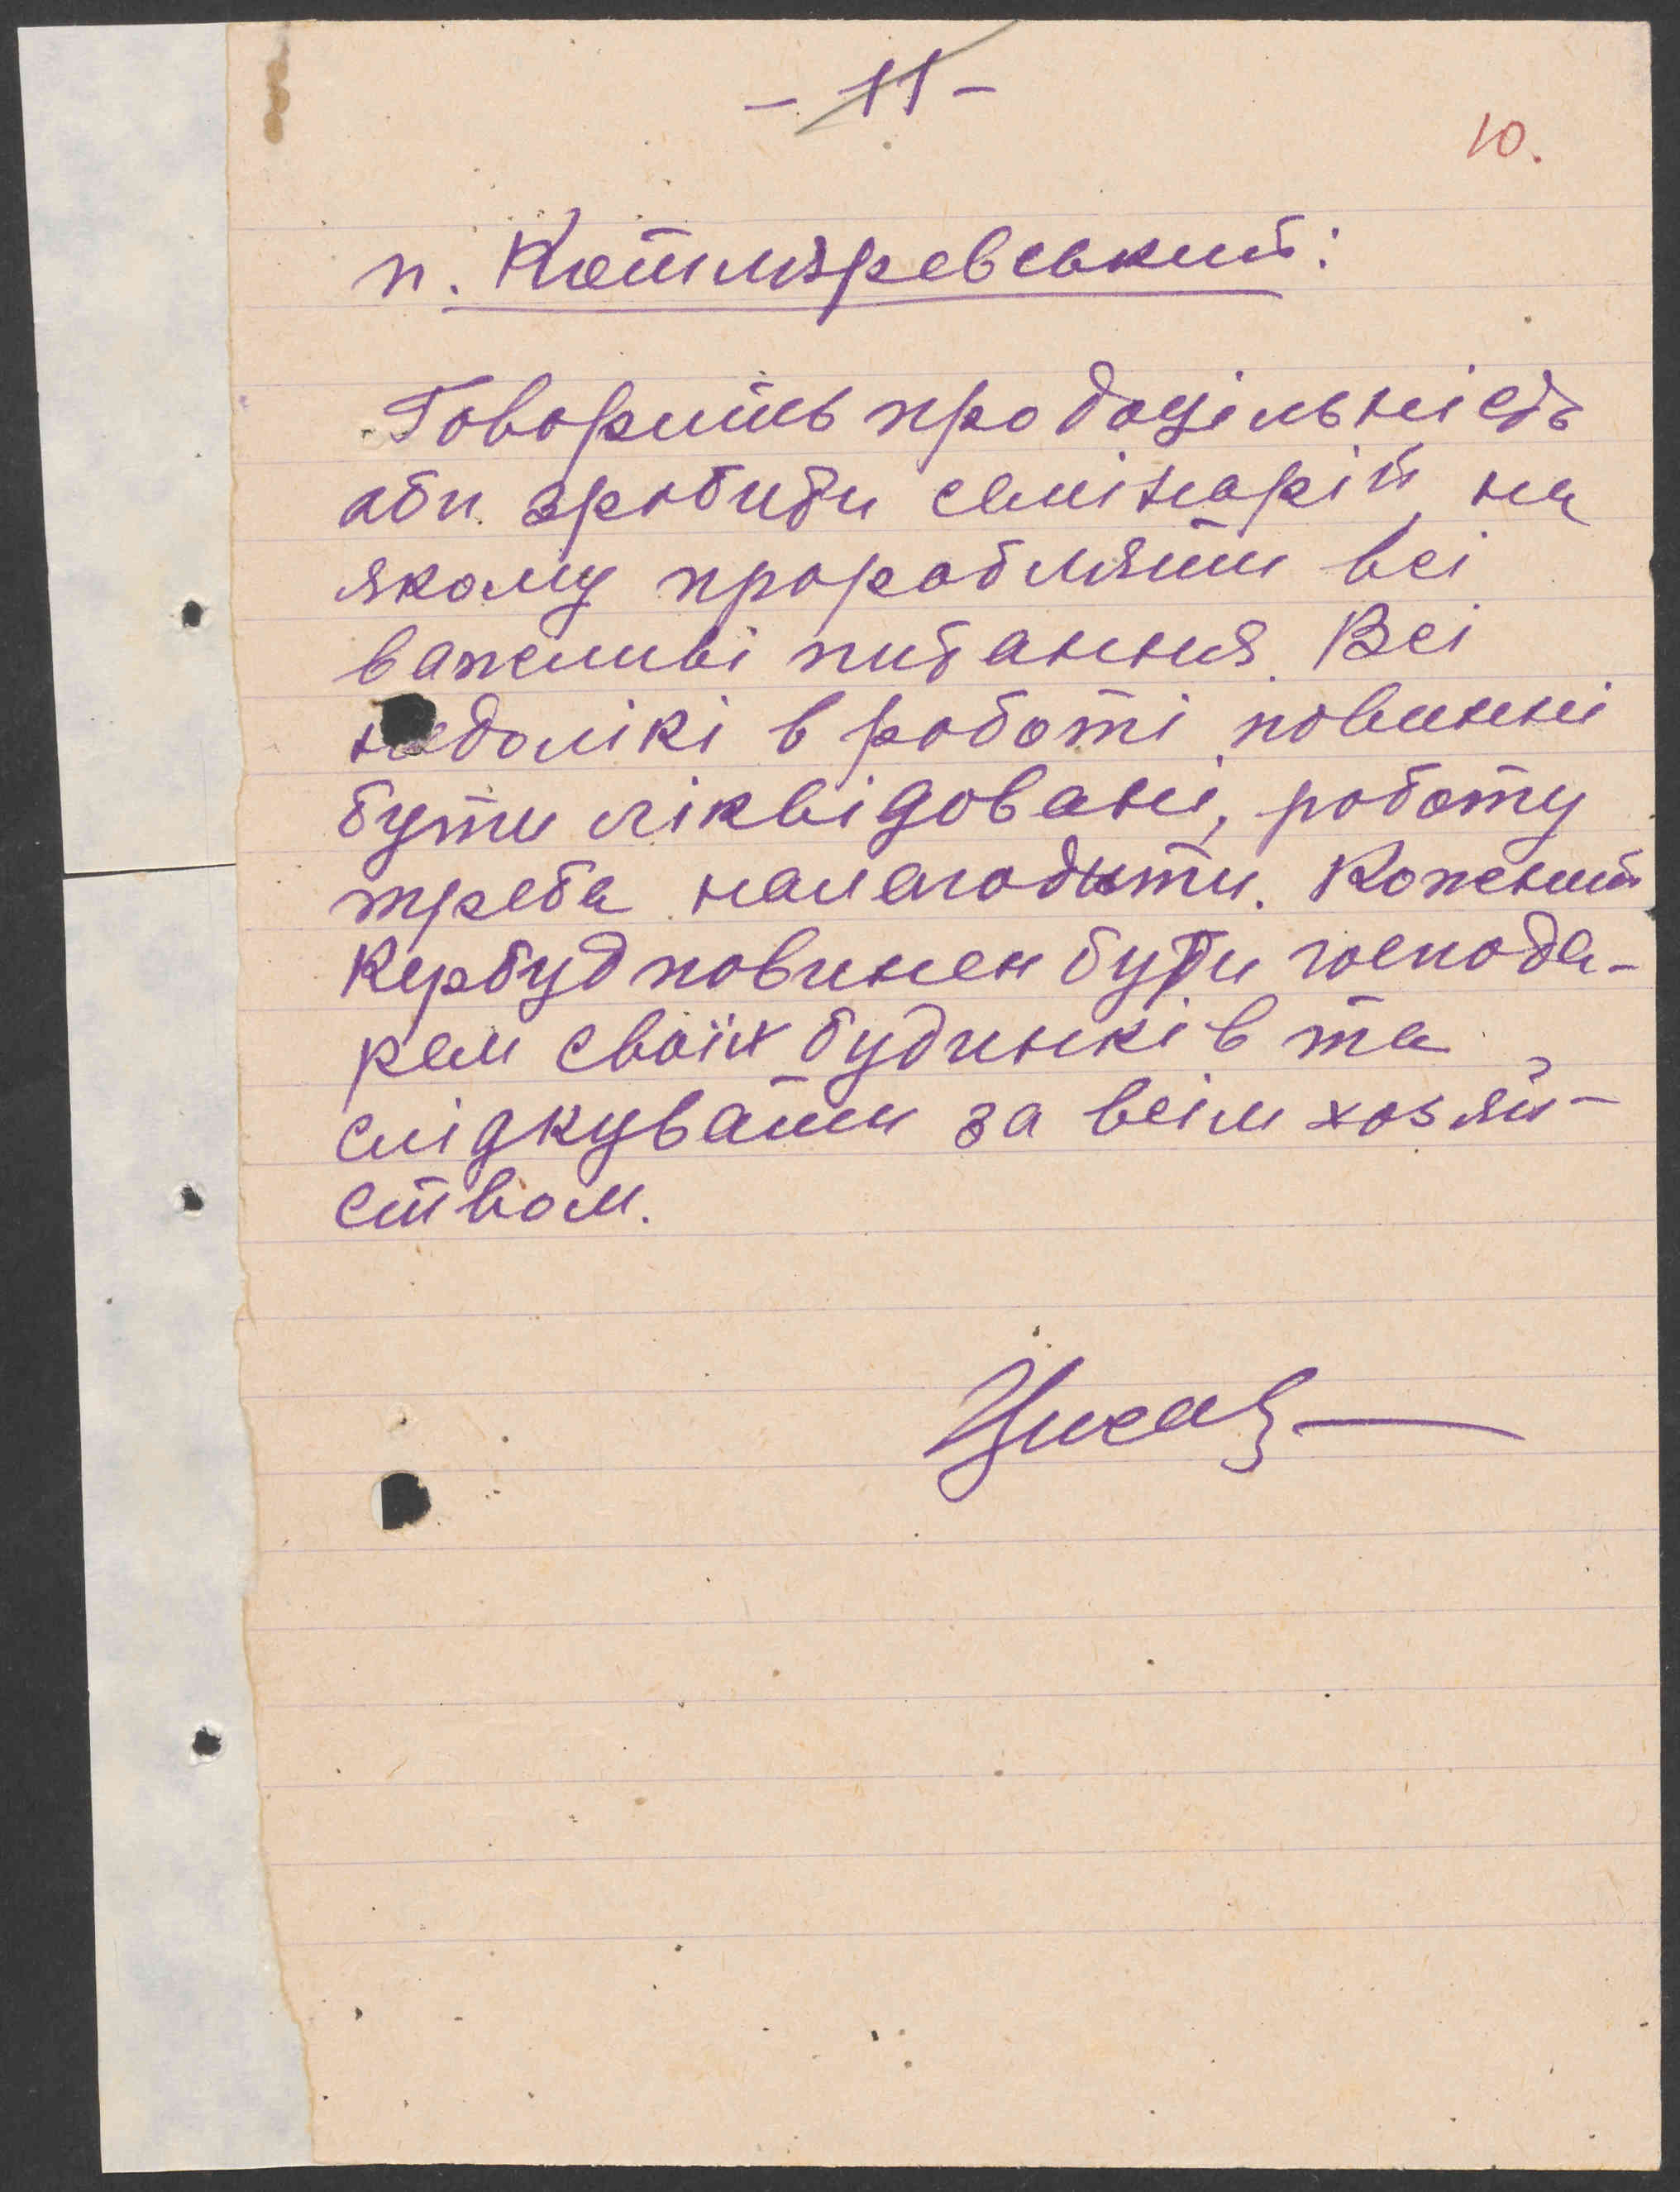 - 11 -
10.
п. Котляревський:
Говорить про доцільність
аби зробити семінарій, на
якому пророблять всі
важливі питання. Всі
недолікі в роботі повинні
бути ліквідовані, роботу
треба налагодити. Кожений
Кербуд повинен бути господа-
рем своїх будинків та
слідкувати за всім хозяй-
ством.